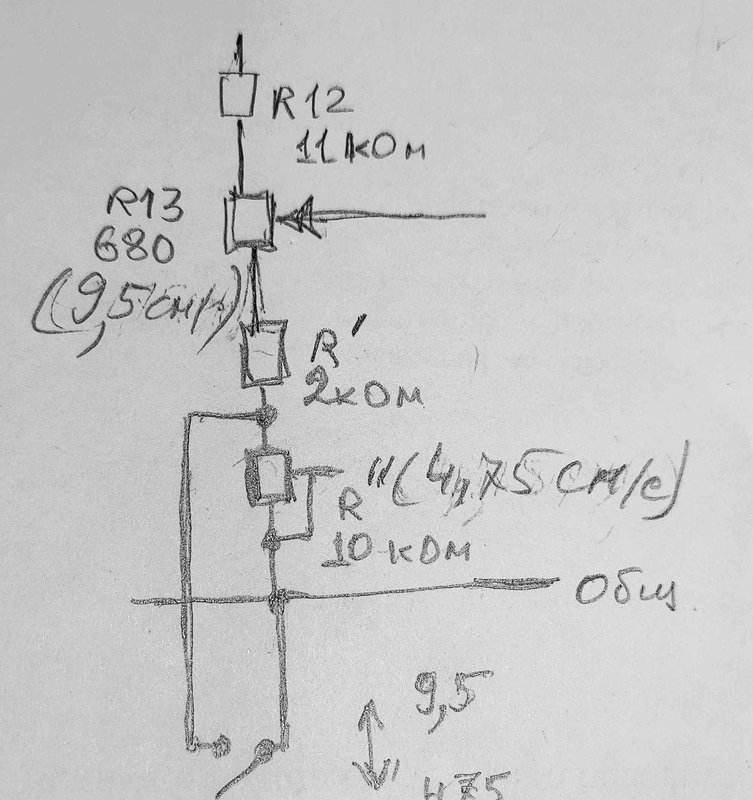 R12
11 кОм
R13
680
(9,5 см/с)
R'
2кОм
R" (4,75 см/с)
10 кОм
Общ.
9,5
4,75